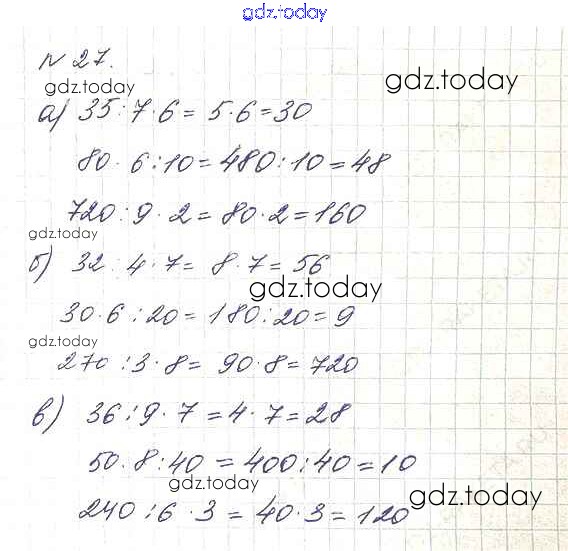 gdz.today
№ 27.
gdz.today
gdz.today
а) 35:7·6 = 5·6=30
80·6:10=480:10=48
720:9·2=80·2=160
gdz.today
б) 32:4·7= 8·7=56
gdz.today
30·6:20=180:20=9
gdz.today
270:3·8= 90·8=720
в) 36:9·7=4·7=28
50·8:40=400:40=10
gdz.today
gdz.today
240:6·3=40·3=120